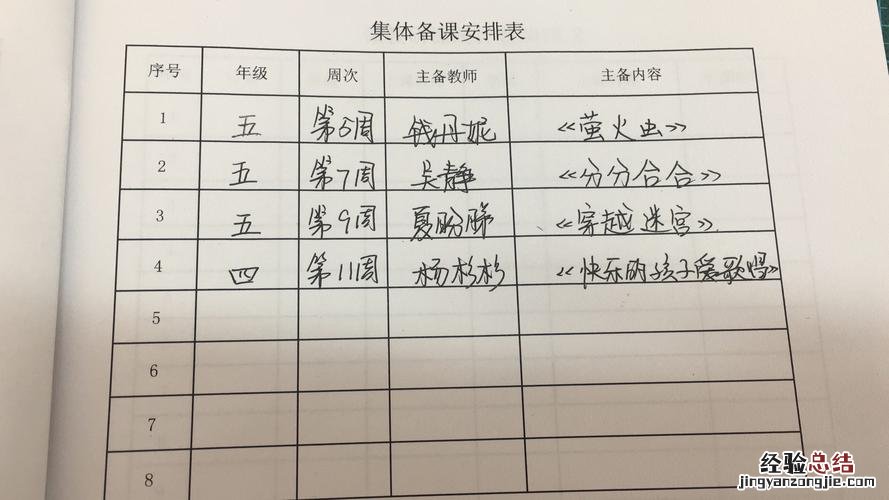 集体备课安排表
序号 年级 周次 主备教师 主备内容
1 五 第5周 钱丹妮 《萤火虫》
2 五 第7周 吴静 《分分合合》
3 五 第9周 夏盼睇 《穿越迷宫》
4 四 第11周 杨杉杉 《快乐的孩子爱歌唱》
5
6
7
8
经验总结
jingyanzongjie.com